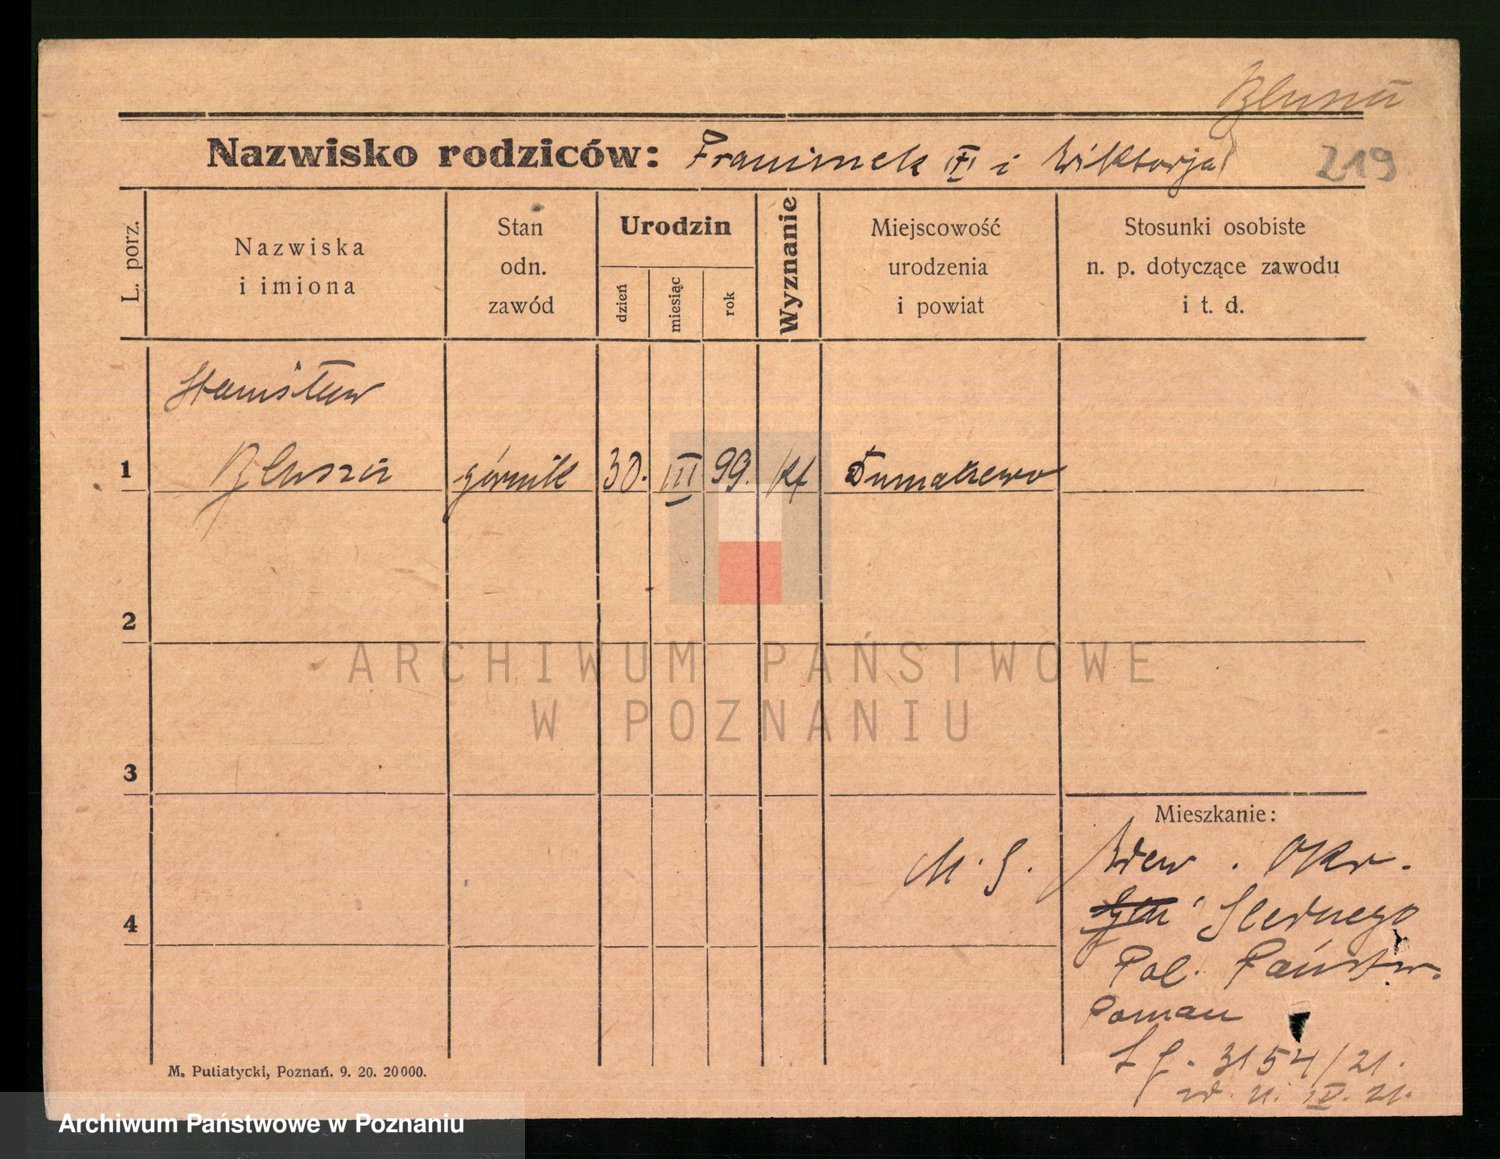 219
Nazwisko rodziców: Franciszek i Wiktorja
L. porz.
Nazwiska
i imiona
Stan
odn.
zawód
Urodzin
dzień
miesiąc
rok
Wyznanie
Miejscowość
urodzenia
i powiat
Stosunki osobiste
n. p. dotyczące zawodu
i t. d.
Stanisław
1 górnik 30. III 99. Kt
2
3
4
Mieszkanie:
M. S.
Okr.
Śledczego
Pol. Państw.
Poznań
3154/21.
21. IV. 21.
M. Putiatycki, Poznań. 9. 20. 20000.
ARCHIWUM PAŃSTWOWE
W POZNANIU
Archiwum Państwowe w Poznaniu